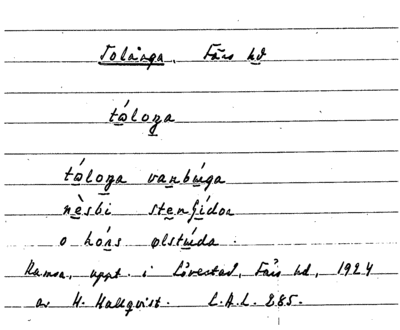 Tolånga, Färs hd
táloŋa
táloŋa vaxbúga
nèsbi stenʃídoa
o hóns ølstúda.
Ramsa, uppt. i Lövestad, Färs hd, 1924
av H. Hallqvist. L.A.L. 285.